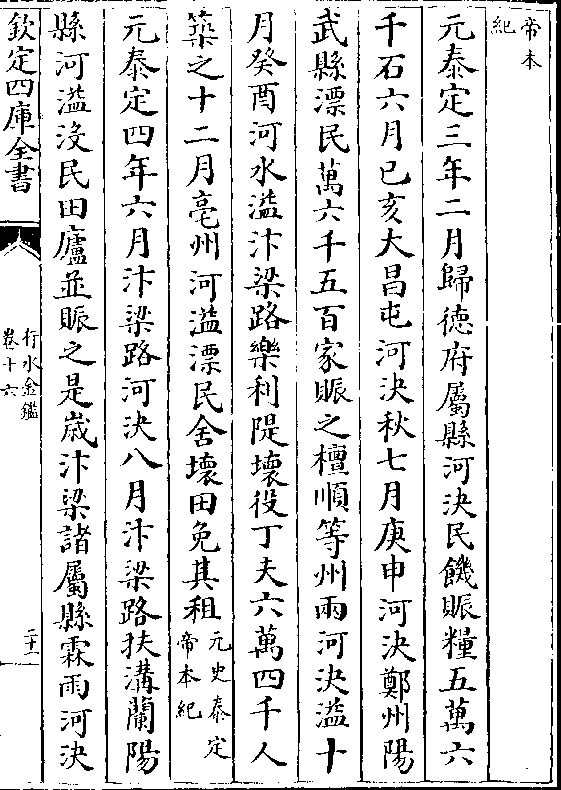 帝本
紀
元泰定三年二月歸德府屬縣河決民饑賑糧五萬六
千石六月已亥大昌屯河決秋七月庚申河決鄭州陽
武縣漂民萬六千五百家賑之檀順等州雨河決溢十
月癸酉河水溢汴梁路樂利隄壞役丁夫六萬四千人
築之十二月亳州河溢漂民舍壞田免其租元史泰定
帝本紀
元泰定四年六月汴梁路河決八月汴梁路扶溝蘭陽
縣河溢沒民田廬並賑之是歲汴梁諸屬縣霖雨河決
欽定四庫全書
行水金鑑
卷十六
二十一